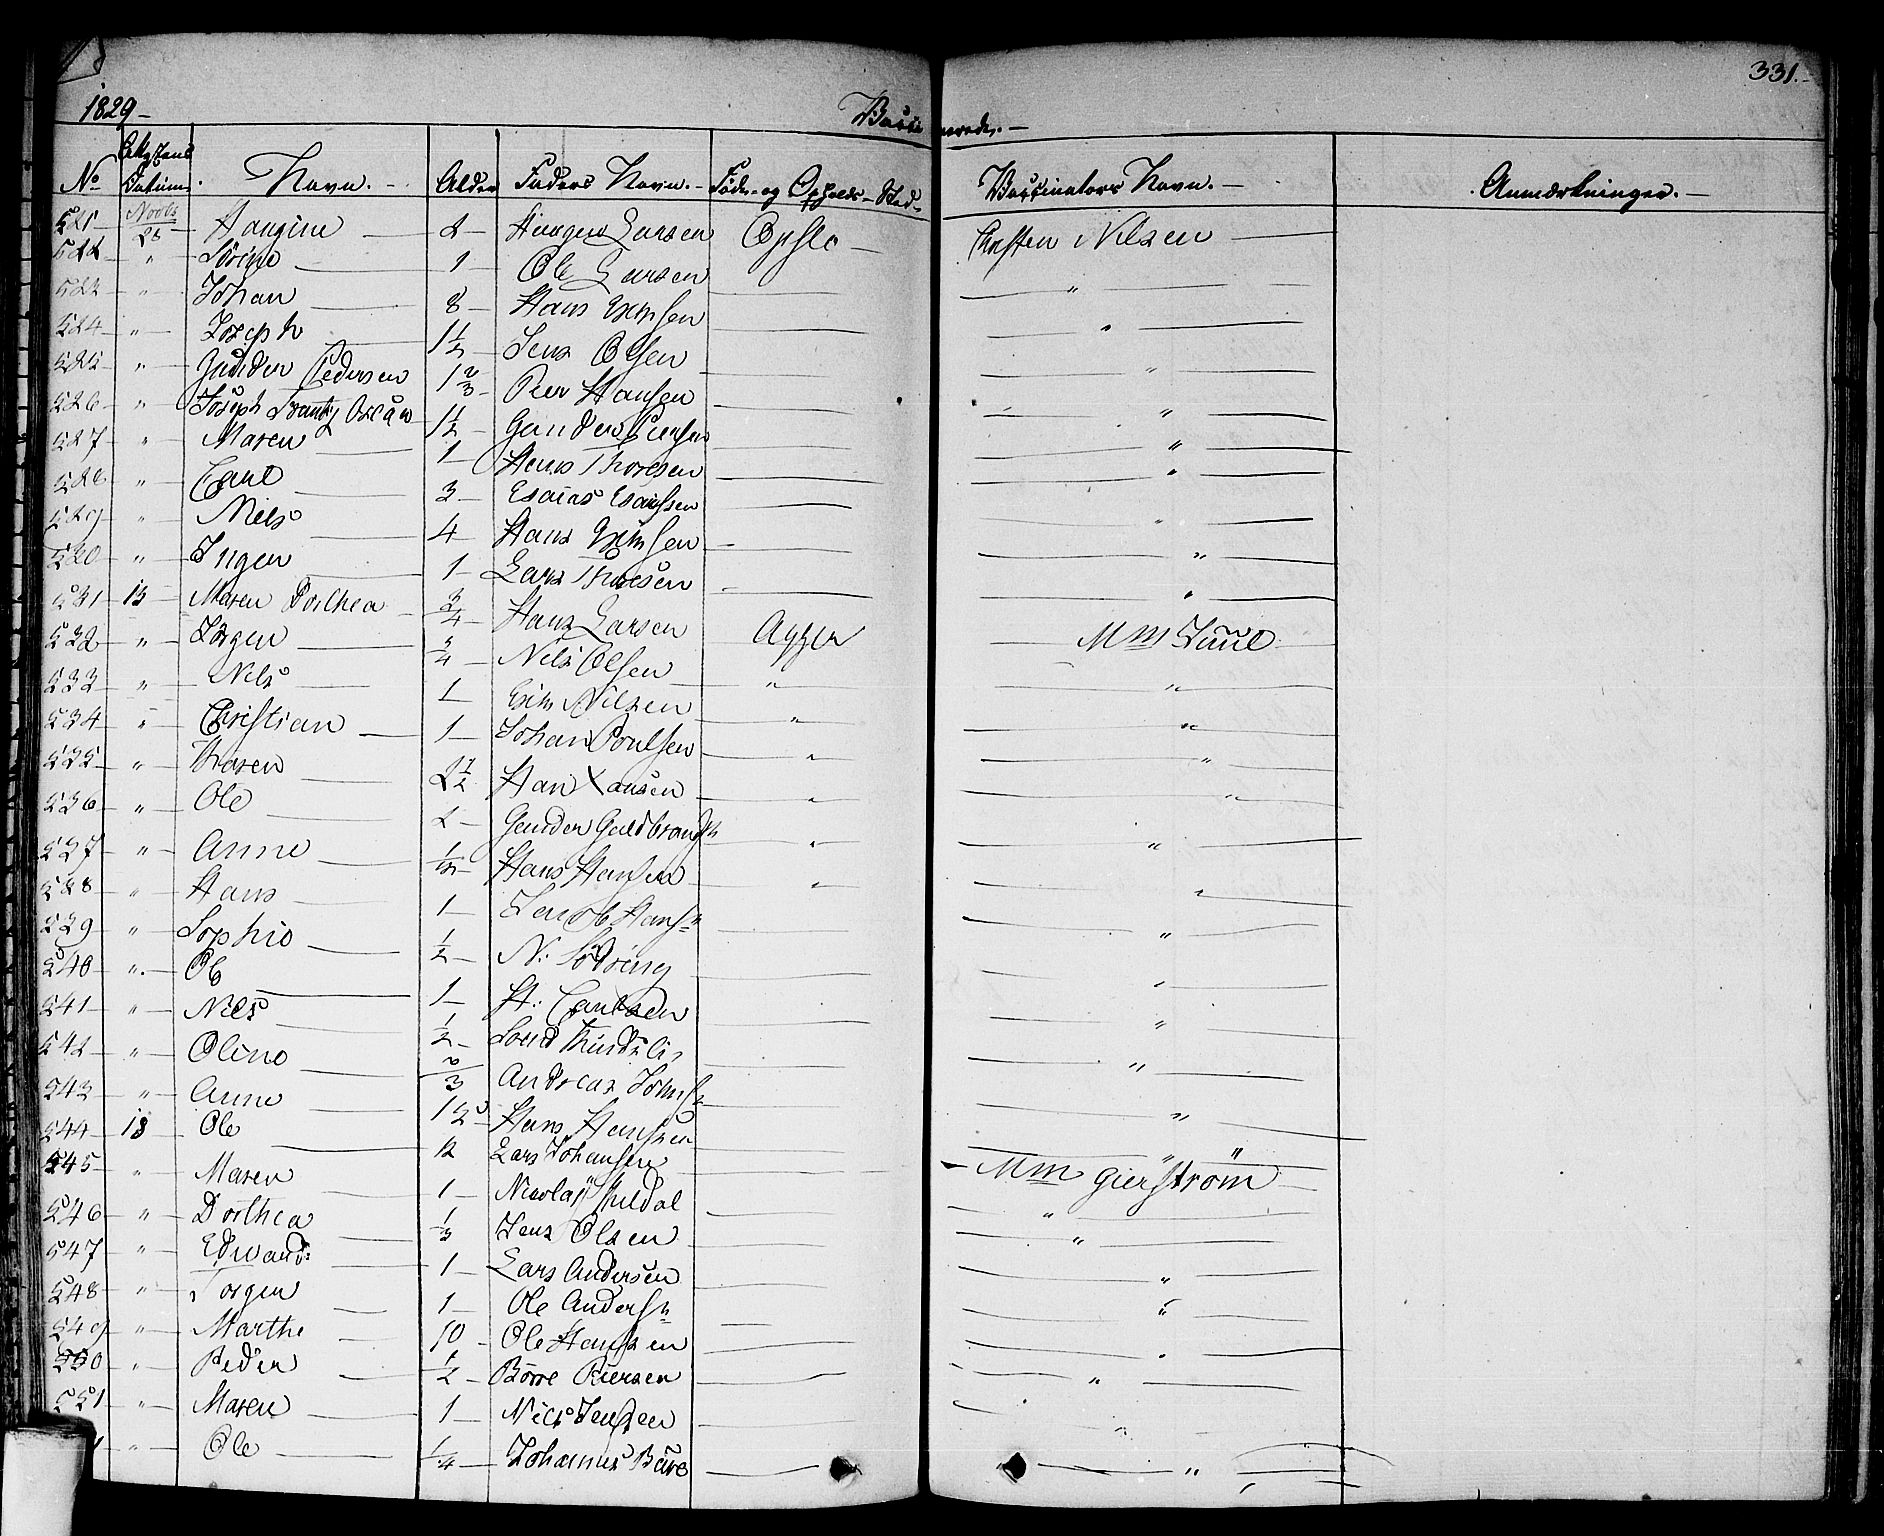 331.
1829 Vaccinerede.
No Attestens Datum. Navn. Alder Faders Navn. Føde- og Opholds-Sted Vaccinators Navn. Anmærkninger.
521 Novbr 28 Hangine 2 Hangen Larsen Opslo Christen Nilsen
522 " Sörine 1 Ole Larsen "
523 " Johan 8 Hans "
524 " Joseph 1 1/2 Jens Olsen "
525 " Gudder Pedersen 1 2/3 Peer Hansen "
526 " Joseph Frantz 1 1/2 Gunder "
527 " Maren 1 Hans Thoresen "
528 " Carl 3 Esaias Esaiassen "
529 " Niels 4 Hans "
530 " Ingen 1 Lars Thoresen "
531 13 Maren Dorthea 3/4 Hans Larsen Agger Mm Juul
532 " Jörgen 3/4 Nels Olsen " "
533 " Nels 1 Erik Nilsen " "
534 " Christian 1 Johan Poulsen " "
535 " Thoren 2 1/2 Han Hansen " "
536 " Ole 2 Gunder Guldbrands " "
537 " Anne 1/2 Hans Hansen " "
538 " Hans 1 Jacob Hansn "
539 " Sophie 1/2 N: Södring "
540 " Ole 1 H: Carlsen "
541 " Niels 1/2 "
542 " Oline 2/3 Andreas "
543 " Anne 1 Hans Hansen "
544 18 Ole 12 Lars Johansen "
545 " Maren 1 Nicolaj Mm Gierström
546 " Dorthea 1/3 Jens Olsen "
547 " Edward 1 Lars Andersen "
548 " Jörgen 1 Ole Andersn "
549 " Marthe 10 Ole Hansen "
550 " Peder 1/2 Börre Piersen "
551 " Maren 1 Niels Jensen "
" Ole 1/4 Johannes "